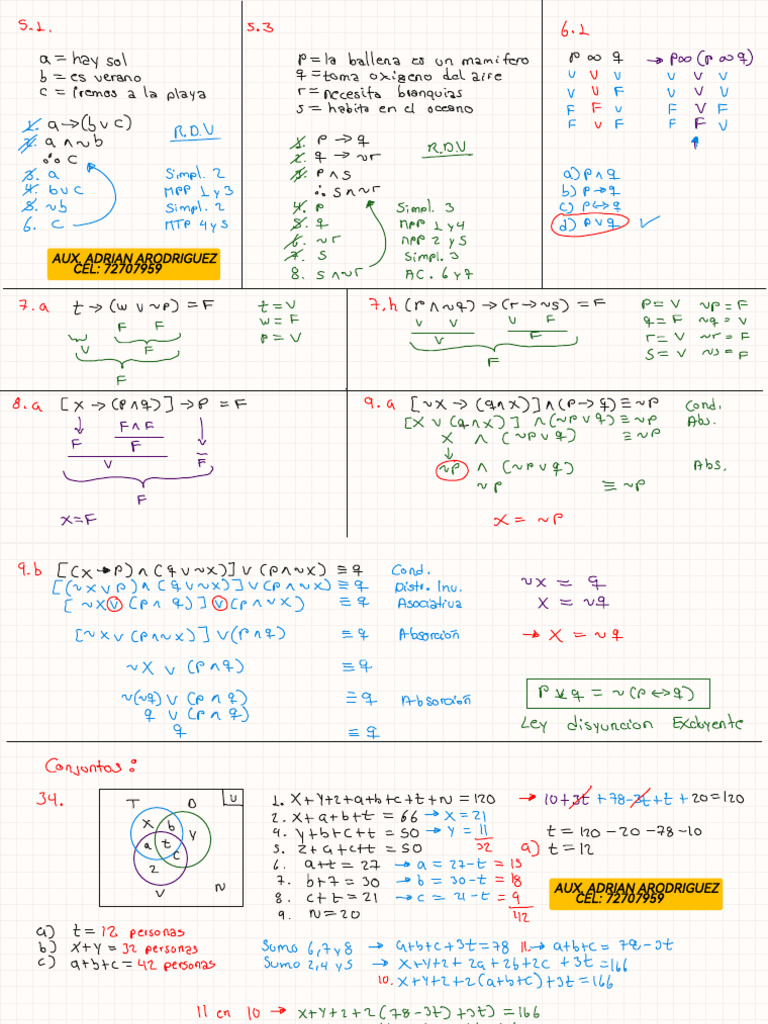 5.1.
a = hay sol
b = es verano
c = iremos a la playa
1. a → (b ∨ c)
2. a ∧ ~b
∴ c
R.D.V
3. a Simpl. 2
4. b ∪ c MPP 1 y 3
5. ~b Simpl. 2
6. c MTP 4 y 5
AUX. ADRIAN ARODRIGUEZ
CEL: 72707959
5.3
p = la ballena es un mamifero
q = toma oxigeno del aire
r = necesita branquias
s = habita en el oceano
1. p → q
2. q → ~r
3. p ∧ s
∴ s ∧ ~r
R.D.V
4. p Simpl. 3
5. q MPP 1 y 4
6. ~r MPP 2 y 5
7. s Simpl. 3
8. s ∧ ~r AC. 6 y 7
6.1
p ∞ q → p ∞ (p ∞ q)
V V V V V V
V V F V V V
F F V F V F
F V F F F V
a) p ∧ q
b) p → q
c) p ↔ q
d) p ∨ q ✓
7.a t → (w ∨ ~p) = F
t = V
w = F
p = V
F F
V F
F
7.h (r ∧ ~q) → (r → ~s) = F
p = V ~p = F
q = F ~q = V
r = V ~r = F
s = V ~s = F
V V V F
V F
F
8.a [x → (p ∧ q)] → p = F
F ∧ F
F F
V F
F
x = F
9.a [~x → (q ∧ x)] ∧ (p → q) ≡ ~p Cond.
[x ∨ (q ∧ x)] ∧ (~p ∨ q) ≡ ~p Abs.
x ∧ (~p ∨ q) ≡ ~p
~p ∧ (~p ∨ q) Abs.
~p ≡ ~p
x = ~p
9.b [(x → p) ∧ (q ∨ ~x)] ∨ (p ∧ ~x) ≡ q Cond.
[(~x ∨ p) ∧ (q ∨ ~x)] ∨ (p ∧ ~x) ≡ q Distr. Inv.
[~x ∨ (p ∧ q)] ∨ (p ∧ ~x) ≡ q Asociativa
[~x ∨ (p ∧ ~x)] ∨ (p ∧ q) ≡ q Absorción
~x ∨ (p ∧ q) ≡ q
~(~q) ∨ (p ∧ q) ≡ q Absorción
q ∨ (p ∧ q)
q ≡ q
~x = q
x = ~q
→ x = ~q
p ⊻ q = ~(p ↔ q)
Ley disyuncion Excluyente
Conjuntos:
34.
T D U
x b y
a t c
z
V N
a) t = 12 personas
b) x+y = 32 personas
c) a+b+c = 42 personas
1. x+y+z+a+b+c+t+N = 120
2. x+a+b+t = 66 → x = 21
4. y+b+c+t = 50 → y = 11
32
5. z+a+c+t = 50
6. a+t = 27 → a = 27-t = 15
7. b+t = 30 → b = 30-t = 18
8. c+t = 21 → c = 21-t = 9
42
9. N = 20
→ 10+3t+78-3t+t+20=120
t = 120-20-78-10
a) t = 12
AUX. ADRIAN ARODRIGUEZ
CEL: 72707959
Sumo 6,7 y 8 → a+b+c+3t=78 11. → a+b+c = 78-3t
Sumo 2,4 y 5 → x+y+z+2a+2b+2c+3t=166
10. x+y+z+2(a+b+c)+3t=166
11 en 10 → x+y+z+2(78-3t)+3t)=166